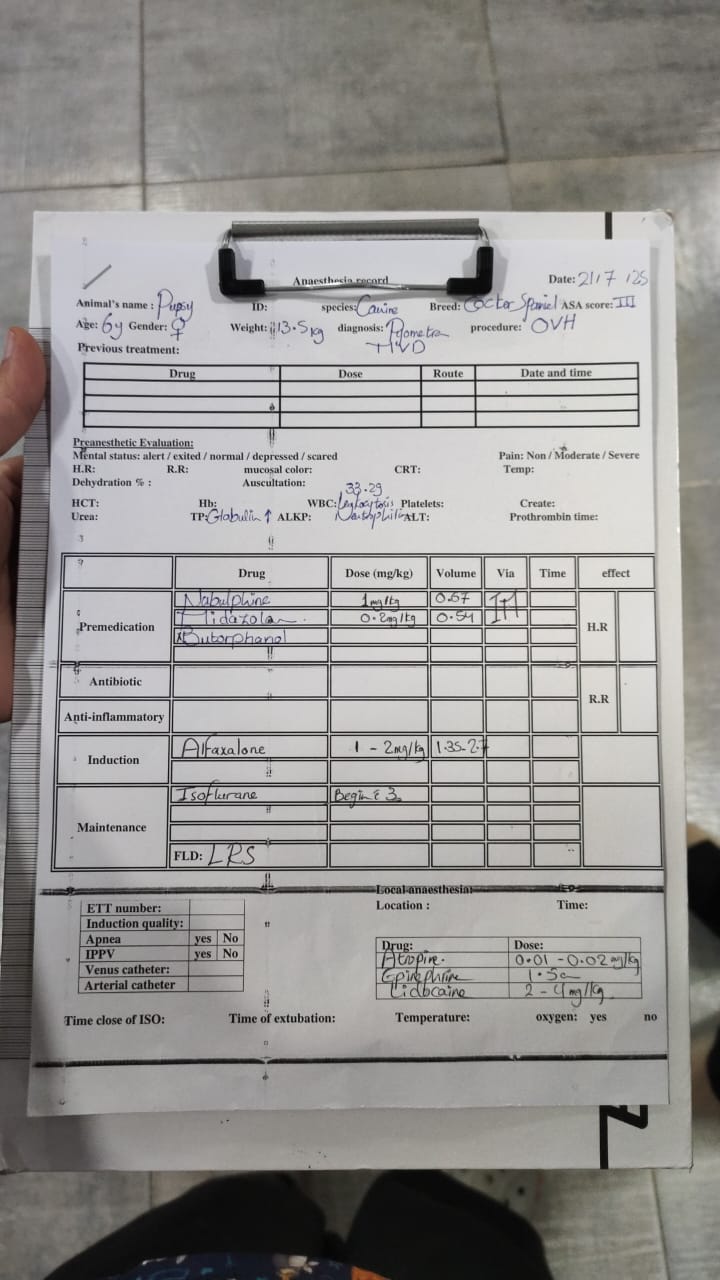 Anaesthesia record
Date: 21/7/25
Animal's name : Pupsy ID: species: Canine Breed: Cocter Spaniel ASA score: III
Age: 6y Gender: ♀ Weight: 13.5 kg diagnosis: Pyometra procedure: OVH
Previous treatment:
Drug Dose Route Date and time
Preanesthetic Evaluation:
Mental status: alert / exited / normal / depressed / scared Pain: Non / Moderate / Severe
H.R: R.R: mucosal color: CRT: Temp:
Dehydration % : Auscultation:
33.29
HCT: Hb: WBC: Platelets: Create:
Urea: TP: Globulin ↑ ALKP: ALT: Prothrombin time:
Drug Dose (mg/kg) Volume Via Time effect
Premedication Nabulphine 1mg/kg 0.67 IM H.R
Midazolam. 0.2mg/kg 0.54
Butorphanol
Antibiotic R.R
Anti-inflammatory
Induction Alfaxalone 1 - 2mg/kg 1.35-2.7
Maintenance Isoflurane Begin 3
FLD: LRS
Local anaesthesia:
Location : Time:
ETT number:
Induction quality:
Apnea yes No
IPPV yes No
Venus catheter:
Arterial catheter
Drug: Dose:
Atropine. 0.01 - 0.02 mg/kg
Epinephrine
Lidocaine 2 - 4mg/kg
Time close of ISO: Time of extubation: Temperature: oxygen: yes no